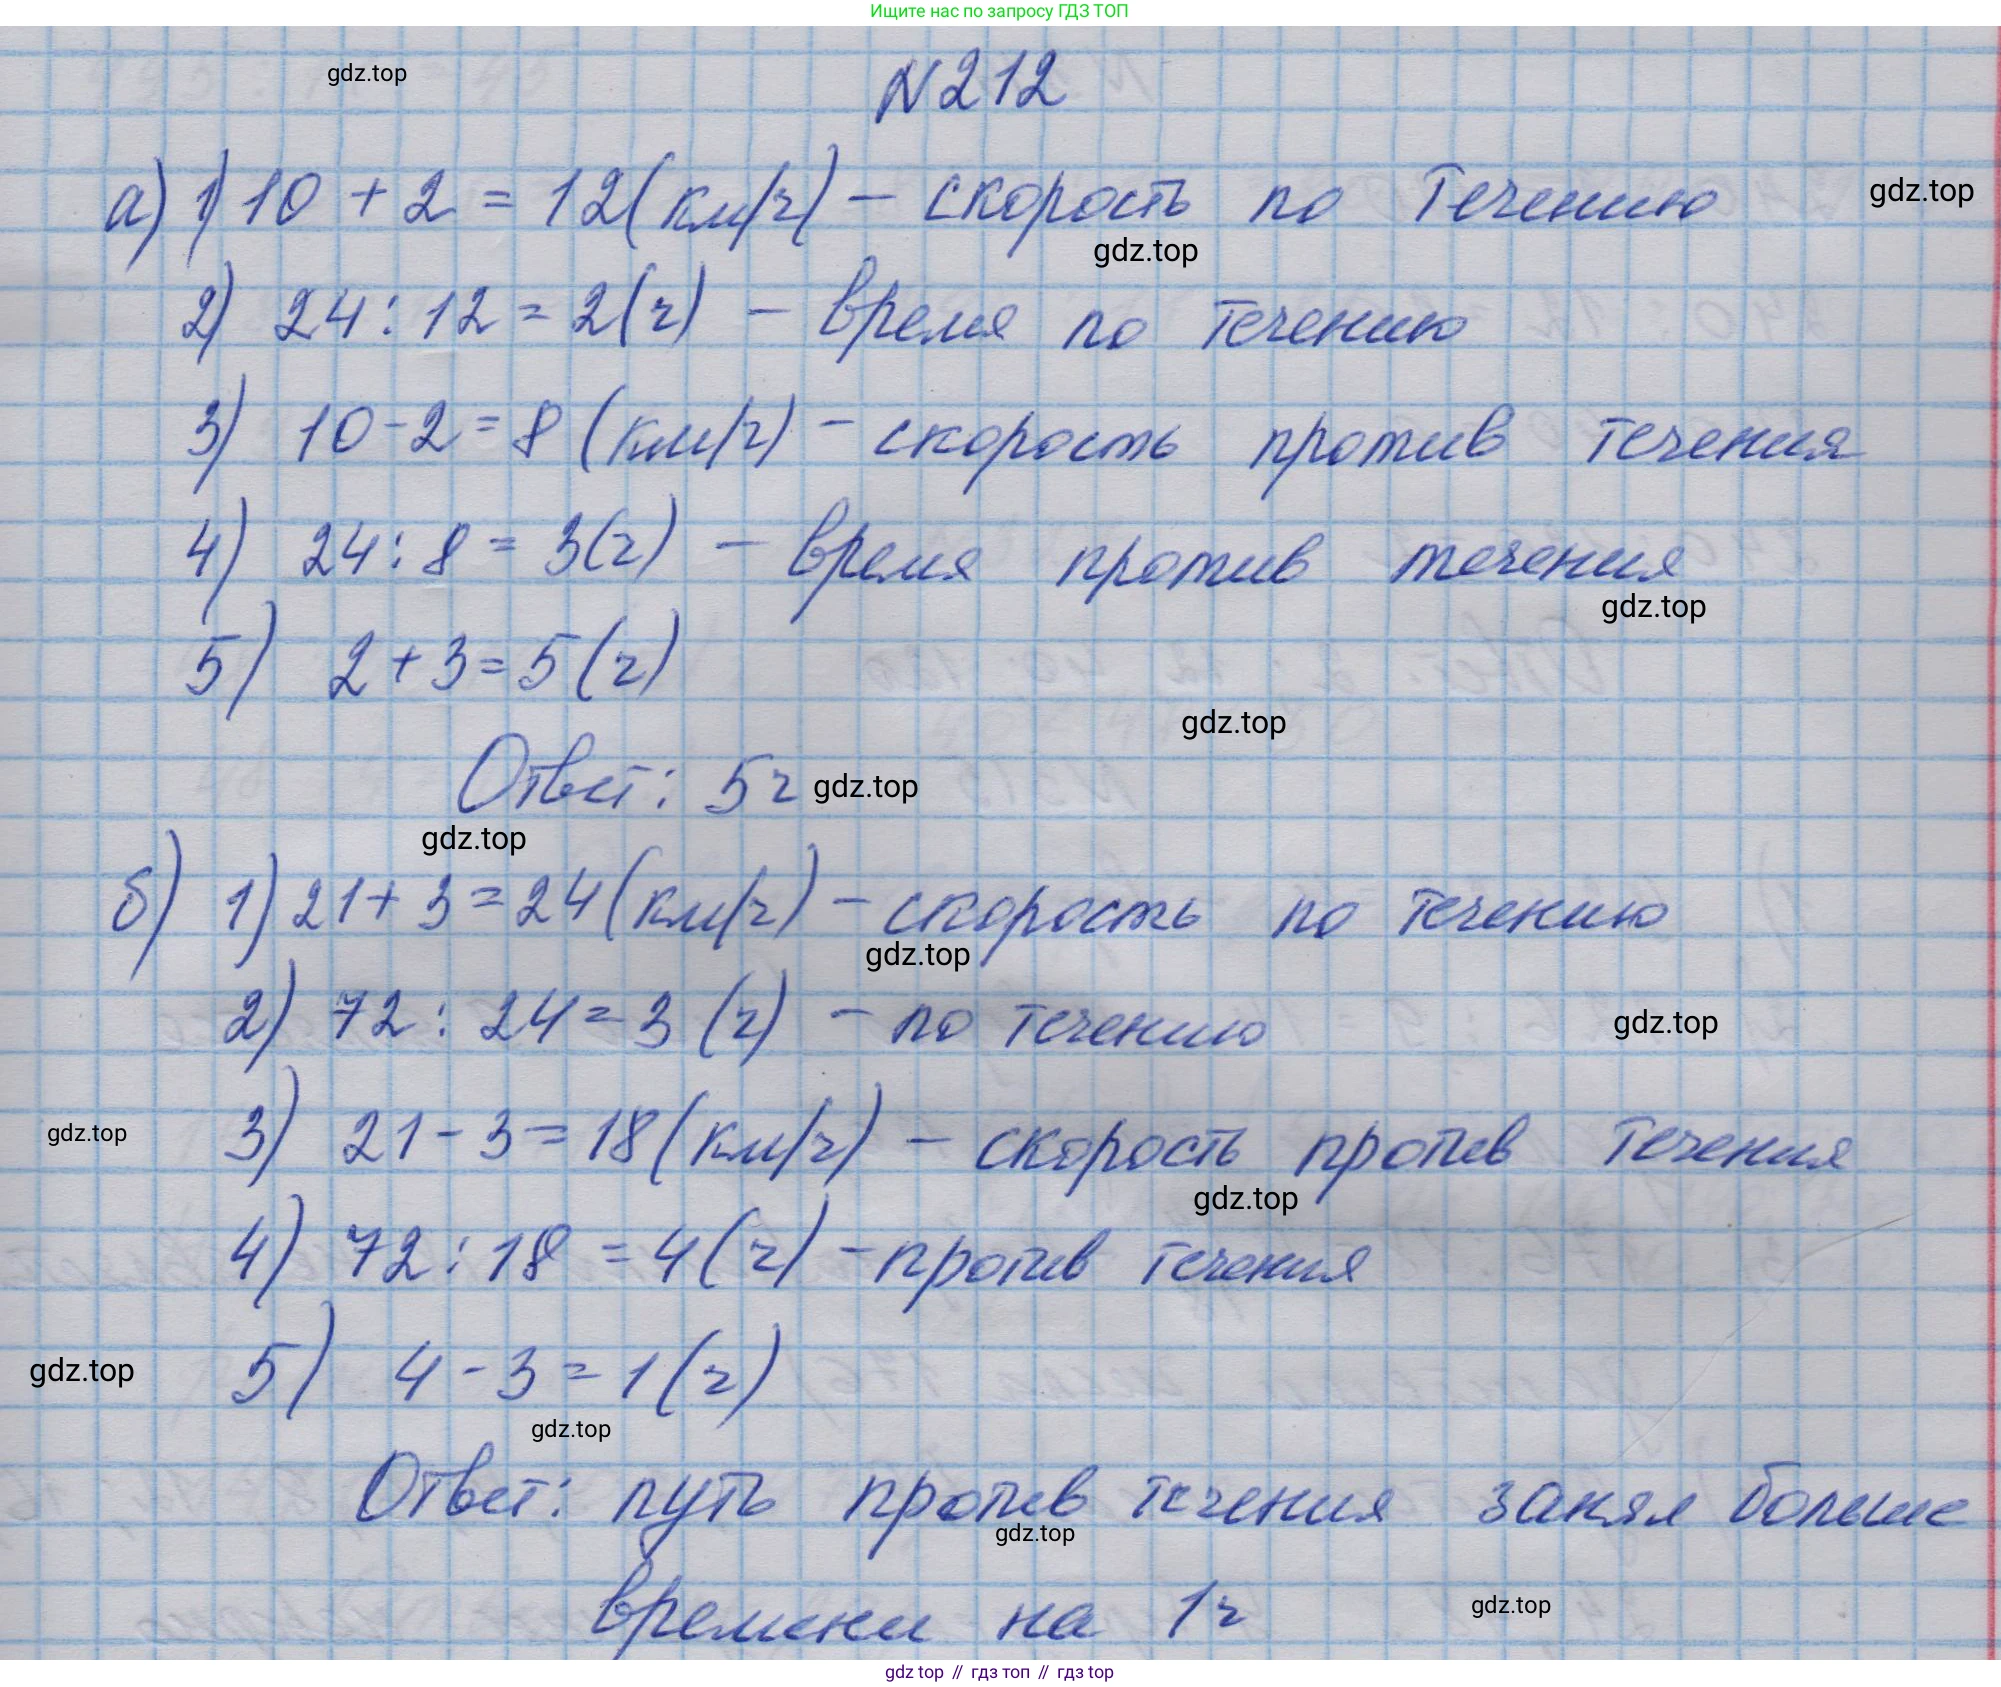 Ищите нас по запросу ГДЗ ТОП
gdz.top
N212
а) 1) 10 + 2 = 12 (км/ч) - скорость по течению
gdz.top
gdz.top
2) 24 : 12 = 2 (ч) - время по течению
3) 10 - 2 = 8 (км/ч) - скорость против течения
4) 24 : 8 = 3 (ч) - время против течения
gdz.top
5) 2 + 3 = 5 (ч)
gdz.top
Ответ: 5 ч
gdz.top
gdz.top
б) 1) 21 + 3 = 24 (км/ч) - скорость по течению
gdz.top
2) 72 : 24 = 3 (ч) - по течению
gdz.top
gdz.top
3) 21 - 3 = 18 (км/ч) - скорость против течения
gdz.top
4) 72 : 18 = 4 (ч) - против течения
gdz.top
5) 4 - 3 = 1 (ч)
gdz.top
Ответ: путь против течения занял больше
gdz.top
времени на 1 ч
gdz.top
gdz top // гдз топ // гдз top